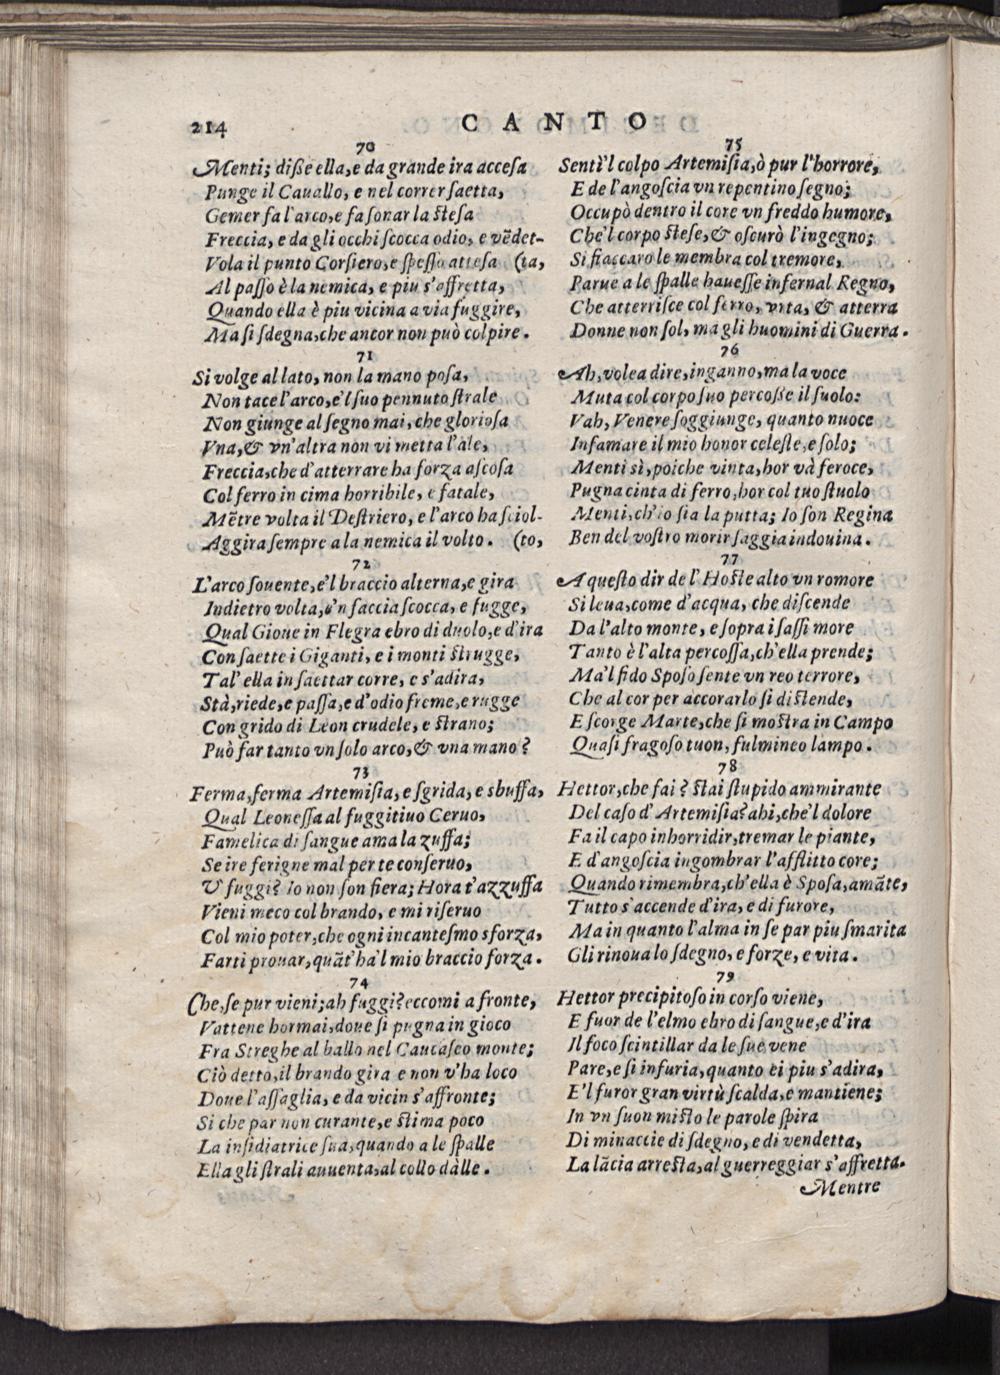 214
CANTO
70
Menti; diſſe ella, e da grande ira acceſa
Punge il Cauallo, e nel correr ſaetta,
Gemer fa l'arco, e fa ſonar la ſteſa
Freccia, e da gli occhi ſcocca odio, e vẽdet-
Vola il punto Corſiero, e ſpeſſo atteſa (ta,
Al paſſo è la nemica, e piu s'affretta,
Quando ella è piu vicina a via fuggire,
Ma ſi ſdegna, che ancor non può colpire.
71
Si volge al lato, non la mano poſa,
Non tace l'arco, e'l ſuo pennuto ſtrale
Non giunge al ſegno mai, che glorioſa
Vna, & vn'altra non vi metta l'ale,
Freccia, che d'atterrare ha forza aſcoſa
Col ferro in cima horribile, e fatale,
Mẽtre volta il Deſtriero, e l'arco ha ſciol-
Aggira ſempre a la nemica il volto. (to,
72
L'arco ſouente, e'l braccio alterna, e gira
Indietro volta, e'n faccia ſcocca, e fugge,
Qual Gioue in Flegra ebro di duolo, e d'ira
Con ſaette i Giganti, e i monti ſtrugge,
Tal' ella in ſaettar corre, e s'adira,
Stà, riede, e paſſa, e d'odio freme, e rugge
Con grido di Leon crudele, e ſtrano;
Può far tanto vn ſolo arco, & vna mano?
73
Ferma, ferma Artemiſia, e ſgrida, e sbuffa,
Qual Leoneſſa al fuggitiuo Ceruo,
Famelica di ſangue ama la zuffa;
Se ire ferigne mal per te conſeruo,
V' fuggi? Io non ſon fiera; Hora t'azzuffa
Vieni meco col brando, e mi riſeruo
Col mio poter, che ogni incanteſmo sforza,
Farti prouar, quãt'ha'l mio braccio forza.
74
Che, ſe pur vieni; ah fuggi? eccomi a fronte,
Vattene hormai, doue ſi pugna in gioco
Fra Streghe al ballo nel Caucaſeo monte;
Ciò detto, il brando gira e non v'ha loco
Doue l'aſſaglia, e da vicin s'affronte;
Si che par non curante, e ſtima poco
La inſidiatrice ſua, quando a le ſpalle
Ella gli ſtrali auuenta, al collo dàlle.
75
Sentì'l colpo Artemiſia, ò pur l'horrore,
E de l'angoſcia vn repentino ſegno;
Occupò dentro il core vn freddo humore,
Che'l corpo ſteſe, & oſcurò l'ingegno;
Si fiaccaro le membra col tremore,
Parue a le ſpalle haueſſe infernal Regno,
Che atterriſce col ferro, vrta, & atterra
Donne non ſol, ma gli huomini di Guerra.
76
Ah, volea dire, inganno, ma la voce
Muta col corpo ſuo percoſſe il ſuolo:
Vah, Venere ſoggiunge, quanto nuoce
Infamare il mio honor celeſte, e ſolo;
Menti sì, poiche vinta, hor và feroce,
Pugna cinta di ferro, hor col tuo ſtuolo
Menti, ch'io ſia la putta; Io ſon Regina
Ben del voſtro morir ſaggia indouina.
77
A queſto dir de l'Hoſte alto vn romore
Si leua, come d'acqua, che diſcende
Da l'alto monte, e ſopra i ſaſſi more
Tanto è l'alta percoſſa, ch'ella prende;
Ma'l fido Spoſo ſente vn reo terrore,
Che al cor per accorarlo ſi diſtende,
E ſcorge Marte, che ſi moſtra in Campo
Quaſi fragoſo tuon, fulmineo lampo.
78
Hettor, che fai? ſtai ſtupido ammirante
Del caſo d'Artemiſia? ahi, che'l dolore
Fa il capo inhorridir, tremar le piante,
E d'angoſcia ingombrar l'afflitto core;
Quando rimembra, ch'ella è Spoſa, amãte,
Tutto s'accende d'ira, e di furore,
Ma in quanto l'alma in ſe par piu ſmarita
Gli rinoua lo ſdegno, e forze, e vita.
79
Hettor precipitoſo in corſo viene,
E fuor de l'elmo ebro di ſangue, e d'ira
Il foco ſcintillar da le ſue vene
Pare, e ſi infuria, quanto ei piu s'adira,
E'l furor gran virtù ſcalda, e mantiene;
In vn ſuon miſto le parole ſpira
Di minaccie di ſdegno, e di vendetta,
La lãcia arreſta, al guerreggiar s'affretta.
Mentre